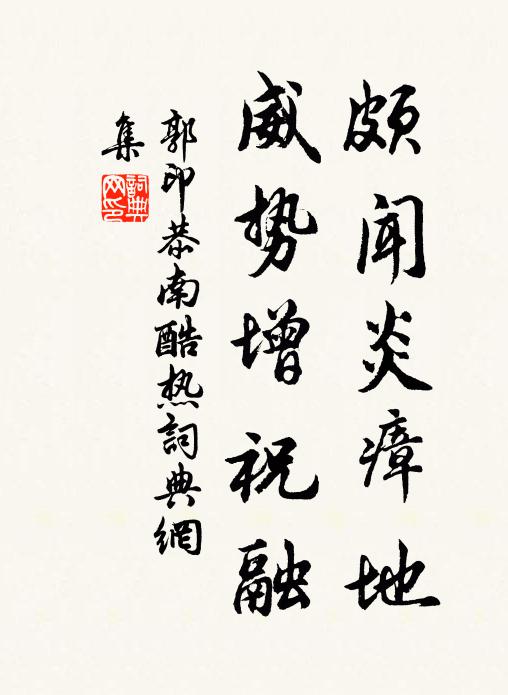 颇闻炎瘴地
威势增祝融
郭印恭南酷热詞典網
集
詞典
网印